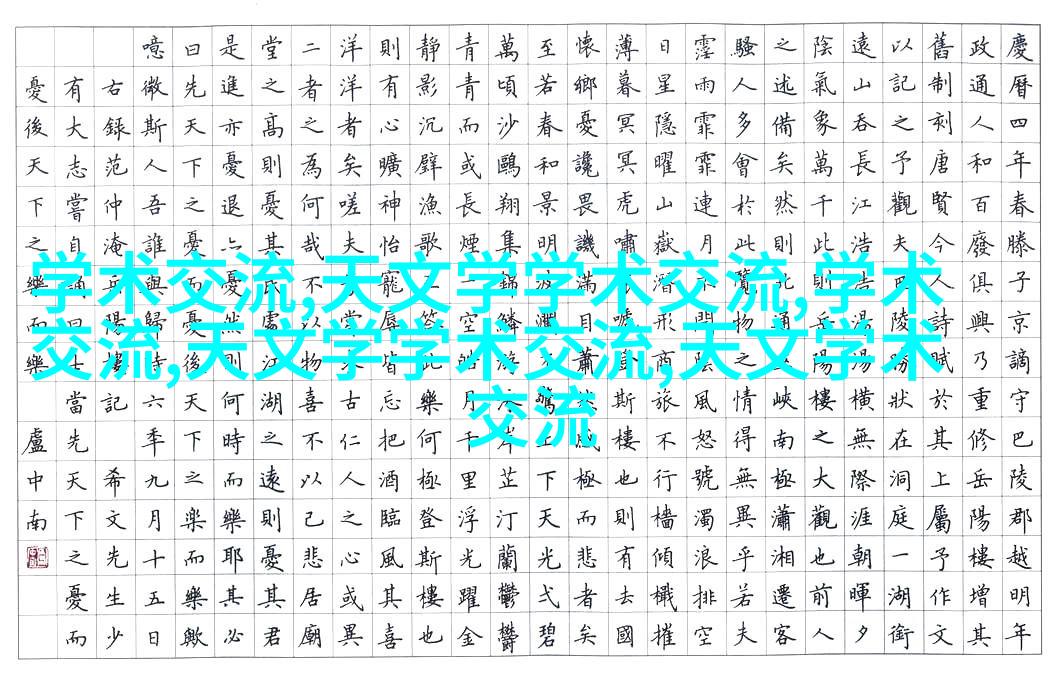 慶曆四年春滕子京謫守巴陵郡越明年
政通人和百廢俱興乃重修岳陽樓增其
舊制刻唐賢今人詩賦於其上屬予作文
以記之予觀夫巴陵勝狀在洞庭一湖銜
遠山吞長江浩浩湯湯橫無際涯朝暉夕
陰氣象萬千此則岳陽樓之大觀也前人
之述備矣然則北通巫峽南極瀟湘遷客
騷人多會於此覽物之情得無異乎若夫
霪雨霏霏連月不開陰風怒號濁浪排空
日星隱曜山嶽潛形商旅不行檣傾檝摧
薄暮冥冥虎嘯猿啼登斯樓也則有去國
懷鄉憂讒畏譏滿目蕭然感極而悲者矣
至若春和景明波瀾不驚上下天光弌碧
萬頃沙鷗翔集錦鱗游泳岸芷汀蘭鬱鬱
青青而或長煙一空皓月千里浮光躍金
靜影沉璧漁歌互答此樂何極登斯樓也
則有心曠神怡寵辱皆忘把酒臨風其喜
洋洋者矣嗟夫予嘗求古仁人之心或異
二者之為何哉不以物喜不以己悲居廟
堂之高則憂其民處江湖之遠則憂其君
是進亦憂退亦憂然則何時而樂耶其必
曰先天下之憂而憂後天下之樂而樂歟
噫微斯人吾誰與歸時六年九月十五日
右錄范仲淹岳陽樓記 希文先生少
有大志嘗自誦曰士當先天下之憂而
憂後天下之樂而樂 盧中南
学术交流,天文学学术交流,学术
交流,天文学学术交流,天文学术
交流